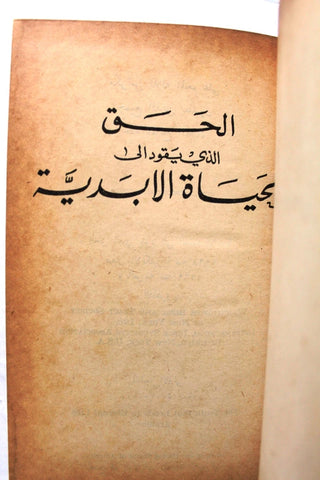 الحق
الذي يقود الى
الحياة الابدية